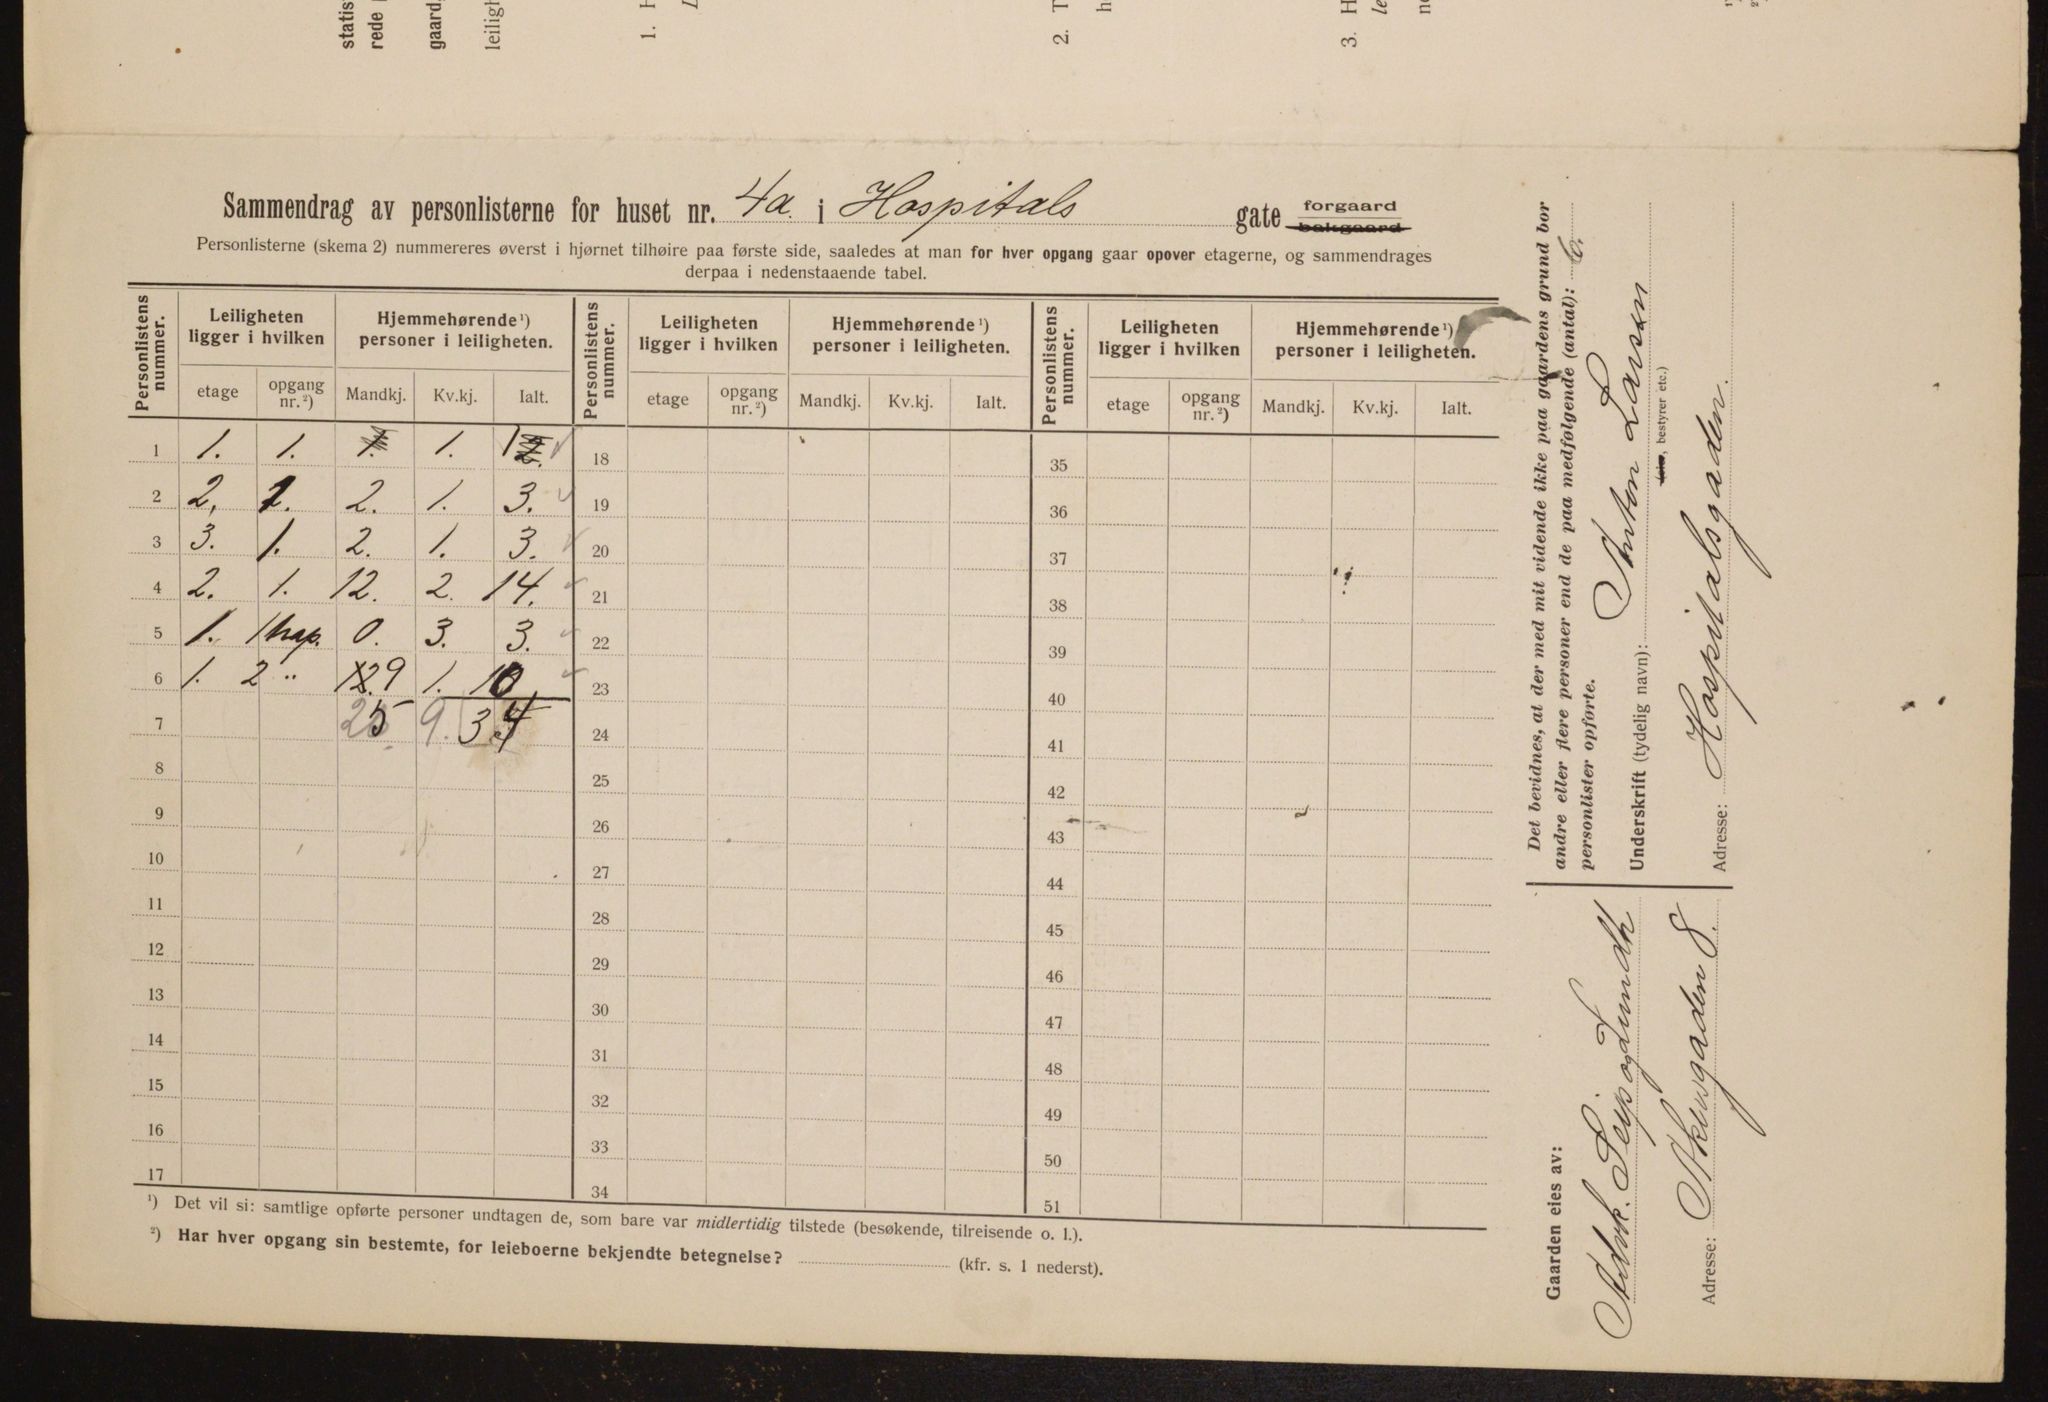 statis
rede
gaard
leiligh
1. H
L
2. T
h
3. H
le
n
Sammendrag av personlisterne for huset nr. 4a. i Hospitals gate forgaard bakgaard
Personlisterne (skema 2) nummereres øverst i hjørnet tilhøire paa første side, saaledes at man for hver opgang gaar opover etagerne, og sammendrages
derpaa i nedenstaaende tabel.
Personlistens nummer. Leiligheten ligger i hvilken Hjemmehørende ¹) personer i leiligheten. Personlistens nummer. Leiligheten ligger i hvilken Hjemmehørende ¹) personer i leiligheten. Personlistens nummer. Leiligheten ligger i hvilken Hjemmehørende ¹) personer i leiligheten.
etage opgang nr. ²) Mandkj. Kv.kj. Ialt. etage opgang nr. ²) Mandkj. Kv.kj. Ialt. etage opgang nr. ²) Mandkj. Kv.kj. Ialt.
1 1. 1. 1. 1. 1 2. 18 35
2 2. 1. 2. 1. 3. 19 36
3 3. 1. 2. 1. 3. 20 37
4 2. 1. 12. 2. 14. 21 38
5 1. 1 trap. 0. 3. 3. 22 39
6 1. 2 " 12. 9 1. 10 23 40
7 25 9. 34 24 41
8 25 42
9 26 43
10 27 44
11 28 45
12 29 46
13 30 47
14 31 48
15 32 49
16 33 50
17 34 51
¹) Det vil si: samtlige opførte personer undtagen de, som bare var midlertidig tilstede (besøkende, tilreisende o. l.).
²) Har hver opgang sin bestemte, for leieboerne bekjendte betegnelse? (kfr. s. 1 nederst).
Det bevidnes, at der med mit vidende ikke paa gaardens grund bor
andre eller flere personer end de paa medfølgende (antal): 6.
personlister opførte.
Anton Larsen
Underskrift (tydelig navn):
(eier, bestyrer etc.)
Adresse: Hospitalsgaden.
Gaarden eies av:
Advk. Seip og Lundh
Adresse: Akersgaden 8.